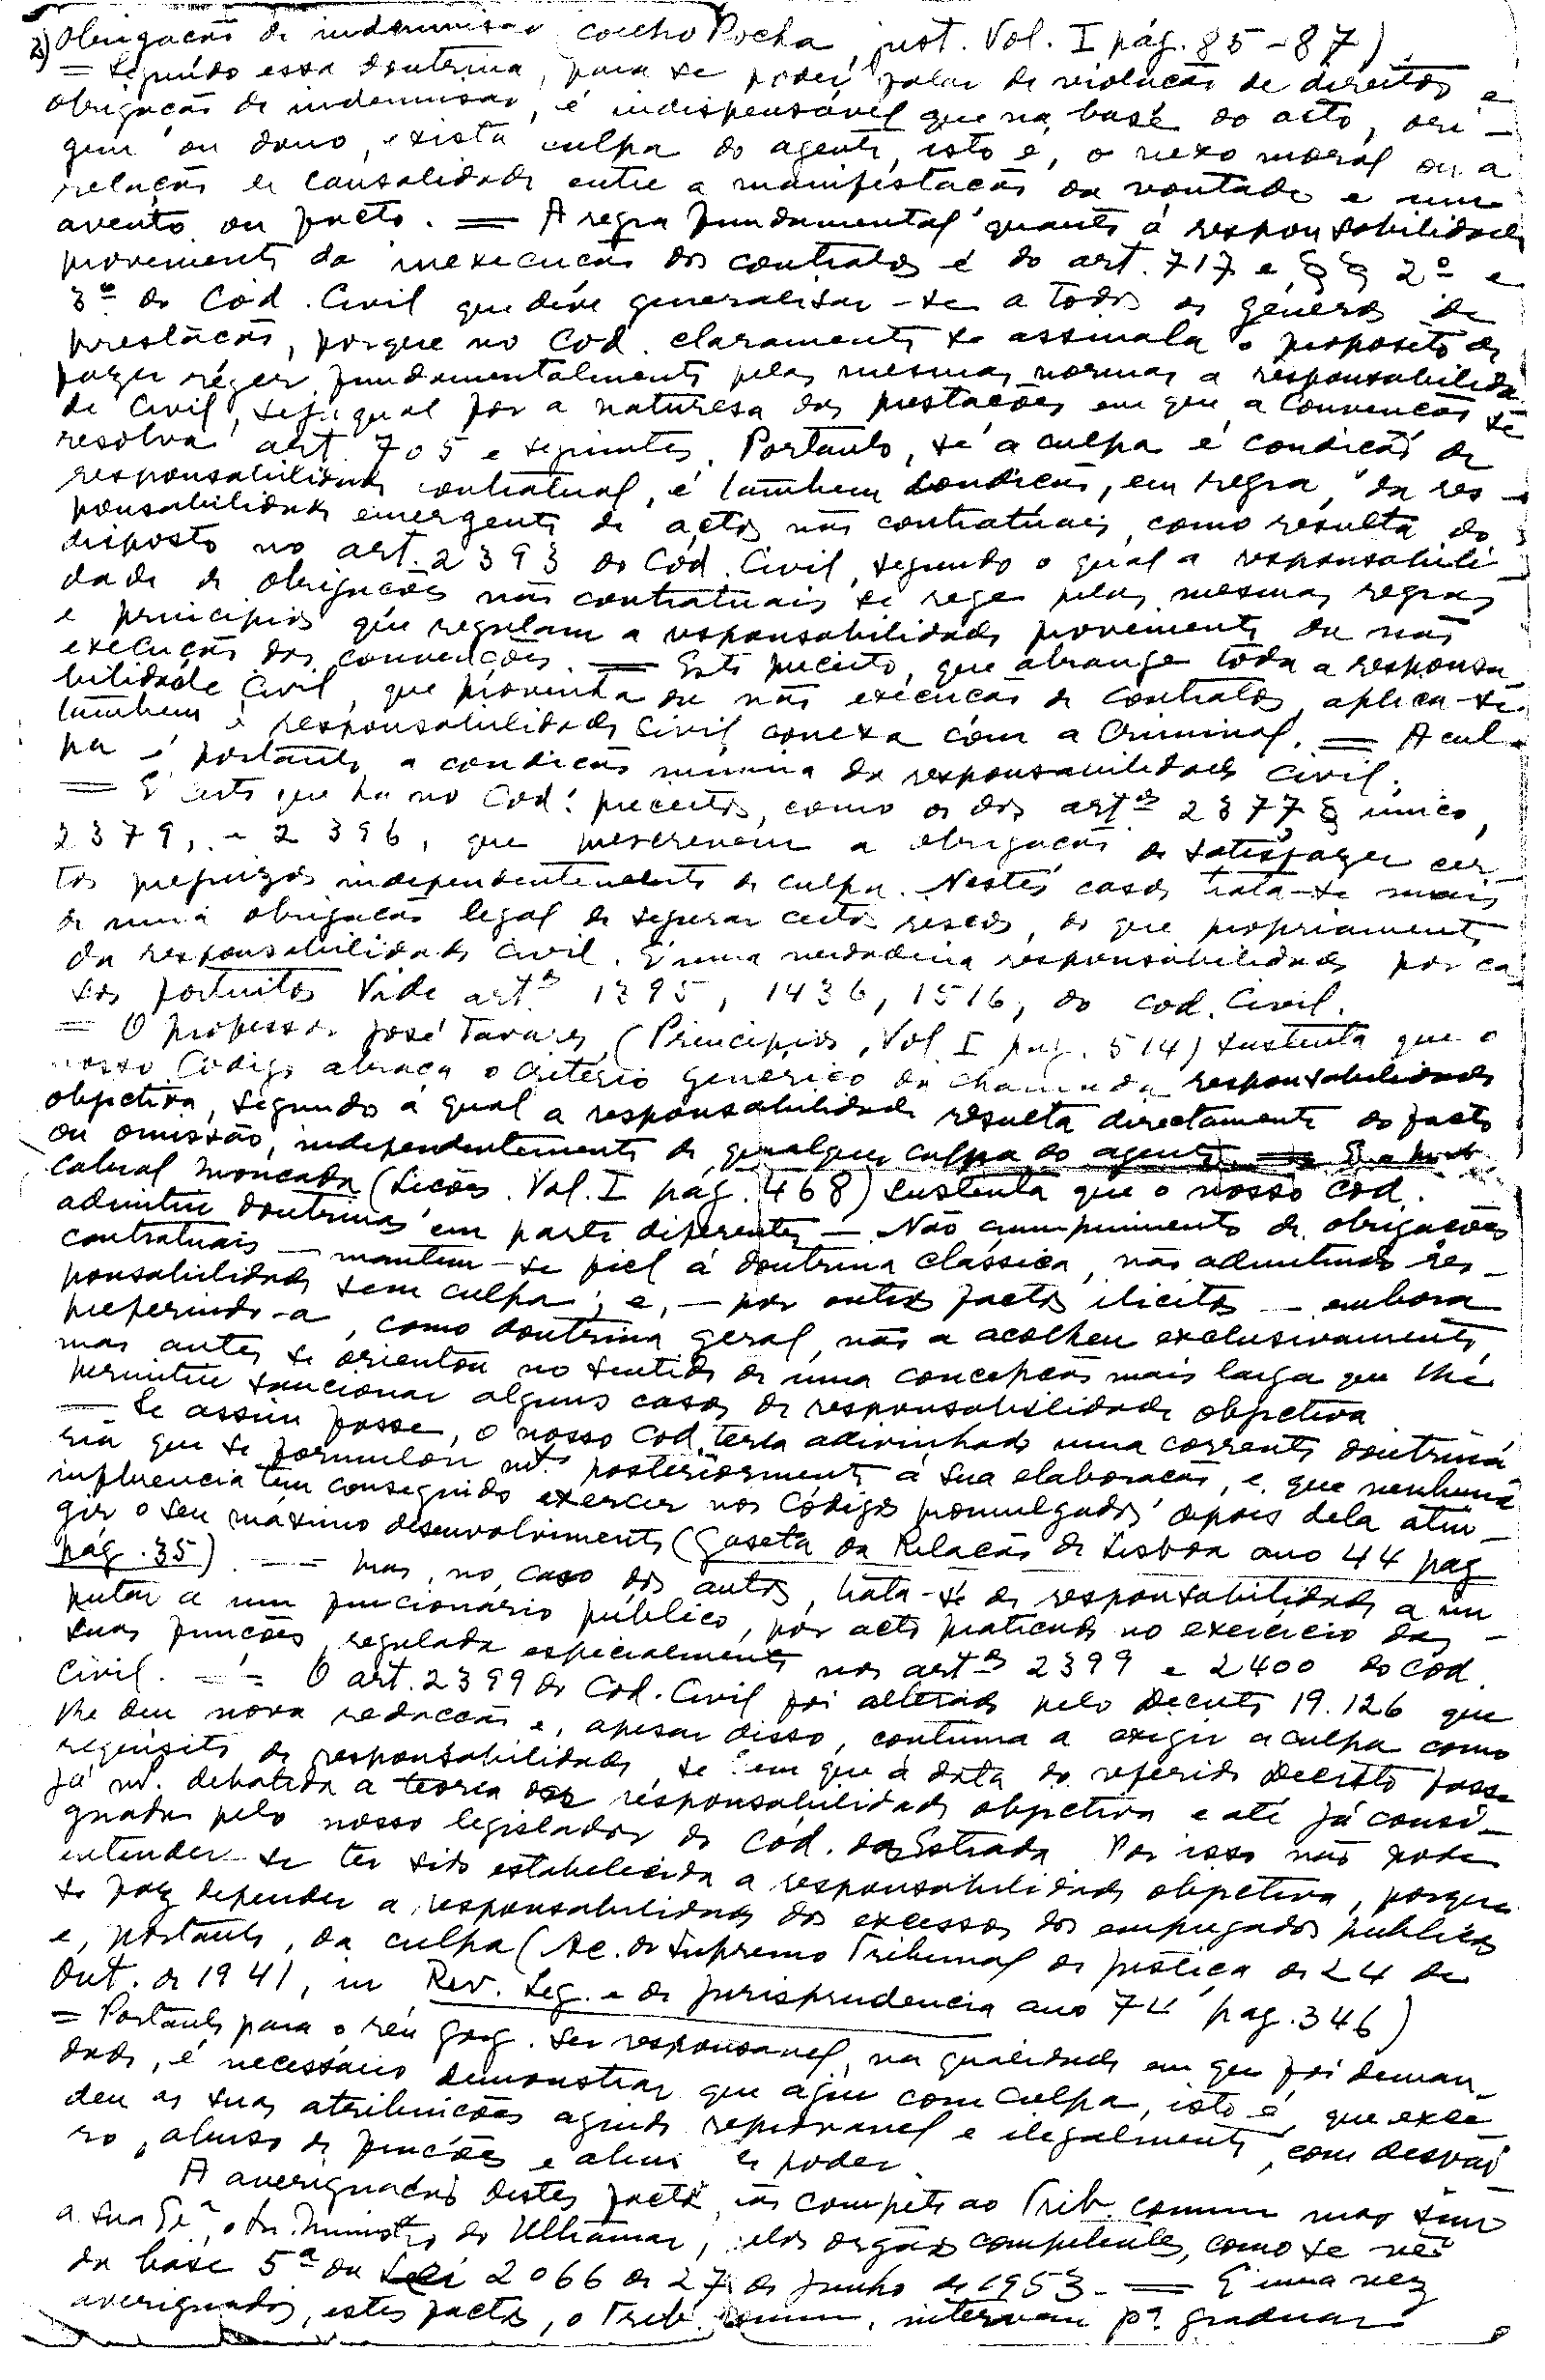 2) Obrigacão de indemnisar (Coelho Rocha, inst. Vol. I pág. 85-87).
= Segundo essa doutrina, para se poder falar de violacão de direitos e
obrigacão de indemnisar, é indispensável que na base do acto, ori-
gem ou dano, exista culpa do agente, isto é, o nexo moral ou a
relacão de causalidade entre a manifestacão da vontade e um
evento ou facto. = A regra fundamental quanto á responsabilidade
proveniente da inexecucão dos contratos é do art. 717 e §§ 2º e
3º do Cod. Civil que deve generalisar-se a todos os géneros de
prestacão, porque no Cod. claramente se assinala o proposito de
fazer réger fundamentalmente pelas mesmas normas a responsabilida
de Civil, seja qual for a naturesa das prestacões em que a Convencão se
resolva art. 705 e seguintes. Portanto, se a culpa é condicão de
responsabilidade contratual, é tambem condicão, em regra, da res-
ponsabilidade emergente de actos não contratuais, como resulta do
disposto no art. 2393 do Cód. Civil, segundo o qual a responsabili-
dade de obrigacões não contratuais se rege pelas mesmas regras
e principios que regulam a responsabilidade proveniente da não
execucão das convencões. = Este preceito, que abrange toda a responsa
bilidade Civil, que provenha da não execucão de contratos, aplica-se
tambem á responsabilidade Civil conexa com a Criminal. = A cul-
pa é portanto a condicão minima da responsabilidade civil.
= É certo que ha no Cod. preceitos, como os dos artºs 2377 § único,
2379, e 2396, que prescrevem a obrigacão de satisfazer cer-
tos prejuizos independentemente de culpa. Nestes casos trata-se mais
de uma obrigacão legal de segurar certos riscos, do que propriamente
da responsabilidade civil. É uma verdadeira responsabilidade por ca-
sos fortuitos Vide artºs 1395, 1436, 1516, do cod. Civil.
= O professor José Tavares (Principios, Vol. I pag. 514) sustenta que o
nosso Codigo abraca o critério generico da chamada responsabilidade
objectiva, segundo a qual a responsabilidade resulta directamente do facto
ou omissão, independentemente de qualquer culpa do agente
Cabral Moncada (Licões. Vol. I pag. 468) sustenta que o nosso Cod.
admitiu doutrinas em parte diferentes — Não cumprimento de obrigacões
contratuais — mantem-se fiel á doutrina clássica, não admitindo res-
ponsabilidade sem culpa; e, — por outros factos ilicitos — embora
preferindo-a, como doutrina geral, não a acolheu exclusivamente,
mas antes se orientou no sentido de uma concepcão mais larga que lhe
permitiu sancionar alguns casos de responsabilidade objectiva.
— Se assim fosse, o nosso Cod. teria adivinhado uma corrente doutriná
ria que se formulou mtº posteriormente á sua elaboracão, e que nenhuma
influencia tem conseguido exercer nos Códigos promulgados depois dela atin-
gir o seu máximo desenvolvimento (Gaseta da Relacão de Lisboa ano 44 pag
pág. 35). — = Mas, no caso dos autos, trata-se de responsabilidade a im
putar a um funcionário público, por acto praticado no exercicio das
suas funcões, regulada especialmente nos artºs 2399 e 2400 do Cod.
Civil. — = O art. 2399 do Cod. Civil foi alterado pelo Decreto 19.126 que
lhe deu nova redaccão e, apesar disso, continua a exigir a culpa como
requisito de responsabilidade, se bem que á data do referido Decreto fosse
já mtº debatida a teoria da responsabilidade objectiva e até já consi-
gnada pelo nosso legislador do Cód. da Estrada. Por isso não pode
entender-se ter sido estabelecida a responsabilidade objectiva, porque
se faz depender a responsabilidade dos excessos dos empregados publicos
e, portanto, da culpa (Ac. do Supremo Tribunal de Justiça de 24 de
Out. de 1941, in Rev. Leg. e de Jurisprudencia ano 74 pag. 346)
= Portanto para o réu Gog. ser responsavel, na qualidade em que foi deman-
dado, é necessário demonstrar que agiu com culpa, isto é, que exce-
deu as suas atribuicões agindo reprovavel e ilegalmente, com desvai
ro, abuso de funcões e abuso de poder.
A averiguacão destes factos, não compete ao Trib. comum mas sim
a Sua Exª o Sr. Ministro do Ultramar, pelos orgãos competentes, como se vê
da base 5ª da Lei 2066 de 27 de Junho de 1953. — = E uma vez
averiguados, estes factos, o Trib. Comum, intervem pª graduar